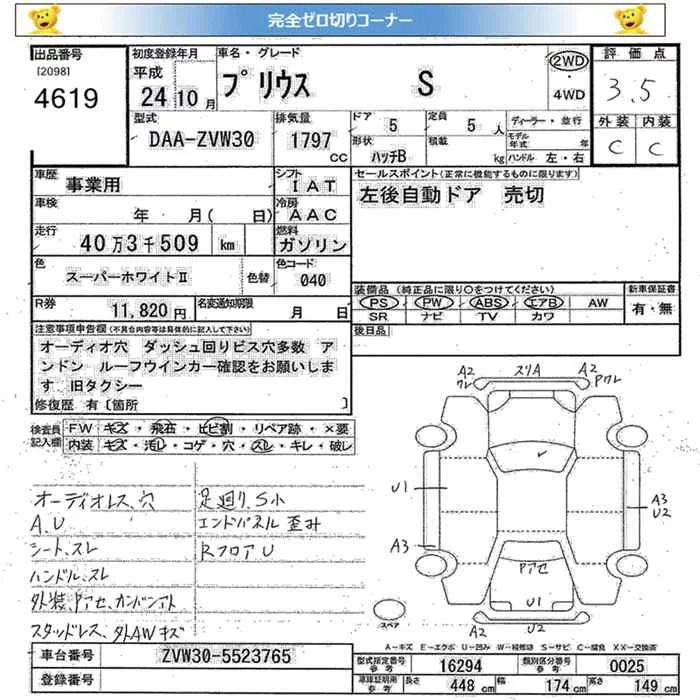 完全ゼロ切りコーナー
出品番号 初度登録年月 車名・グレード 評価点
[2098] 平成 プリウス S 2WD・4WD 3.5
4619 24年10月
型式 排気量 ドア 5 定員 5人 ディーラー・並行 外装 内装
DAA-ZVW30 1797CC 形状 ハッチB 積載 kg モデル年式 年 ハンドル 左・右 C C
車歴 事業用 シフト IAT セールスポイント(正常に機能するものに限ります)
車検 年 月( 日) 冷房 AAC 左後自動ドア 売切
走行 40万3千509 km 燃料 ガソリン
色 スーパーホワイトII 色替 色コード 040
装備品(純正品に限り○をつけてください) 新車保証書
R券 11,820円 名変通知期限 月 日 PS PW ABS エアB AW 有・無
SR ナビ TV カワ
注意事項申告欄(不具合内容等は具体的に記入して下さい) 後日品
オーディオ穴 ダッシュ回りビス穴多数 ア
ンドン ルーフウインカー確認をお願いしま
す 旧タクシー
修復歴 有〔箇所 〕
検査員記入欄 FW キズ・飛石・ヒビ割・リペア跡・×要
内装 キズ・汚し・コゲ・穴・スレ・キレ・破レ
オーディオレス、穴 足廻り、S小
A.U エンドパネル歪み
シート、スレ RフロアU
ハンドル、スレ
外装、Pアセ、カンバンアト
スタッドレス、外AWキズ
A2 スリA A2
ワレ Pワレ
U1 A3
U2
A3
Pアセ
U1
A2 U2 A2
スペア
A-キズ E-エクボ U-凹み W-補修跡 S-サビ C-腐食 XX-交換済
車台番号 ZVW30-5523765 型式指定番号 参考 16294 類別区分番号 参考 0025
登録番号 車庫証明用 参考 長さ 448cm 幅 174cm 高さ 149cm